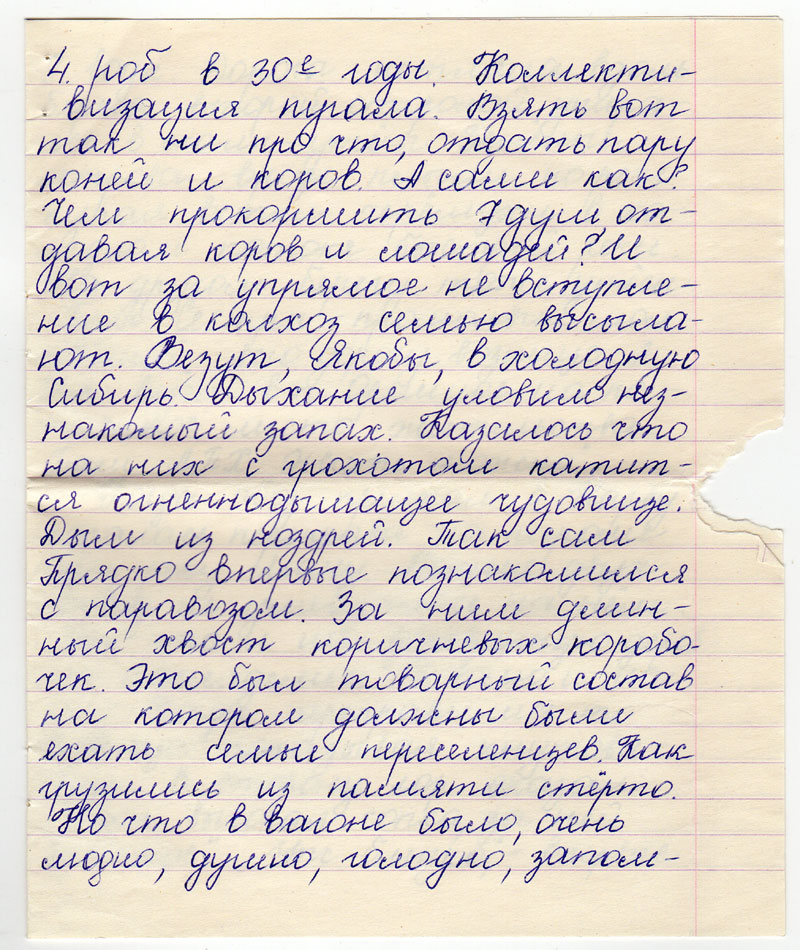 4. роб в 30е годы. Коллекти-
визация пугала. Взять вот
так ни про что, отдать пару
коней и коров. А сами как?
Чем прокормить 7 душ, от-
давая коров и лошадей? И
вот за упрямое не вступле-
ние в колхоз семью высыла-
ют. Везут, якобы, в холодную
Сибирь. Дыхание уловило нез-
накомый запах. Казалось что
на них с грохотом катит-
ся огненнодымащее чудовище.
Дым из ноздрей. Так сам
Прядко впервые познакомился
с паравозом. За ним длин-
ный хвост коричневых коробо-
чек. Это был товарный состав
на котором должны были
ехать семьи переселенцев. Как
грузились из памяти стёрто.
Но что в вагоне было, очень
людно, душно, голодно, запом-